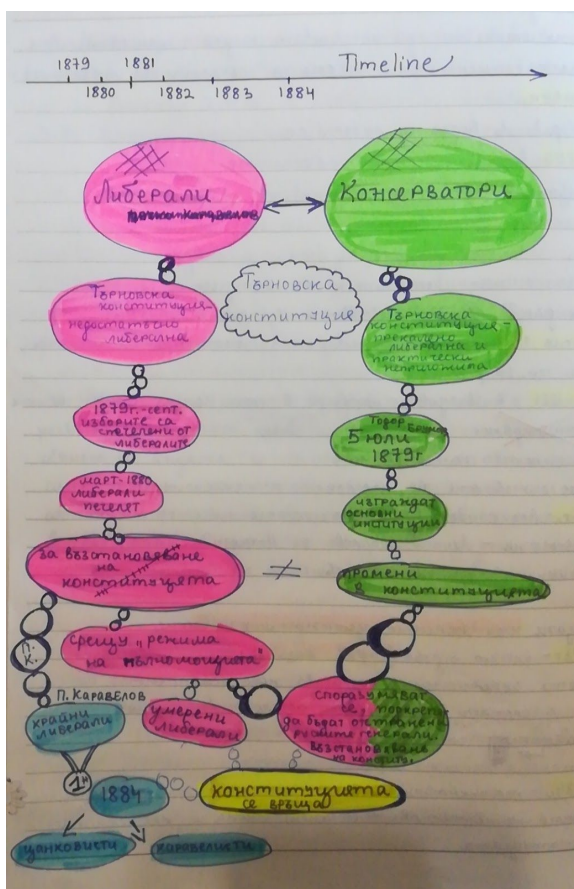 1879
1881
Timeline
1880
1882
1883
1884
Либерали
Консерватори
Търновска
конституция-
недостатъчно
либерална
Търновска
конституция
Търновска
конституция-
прекалено
либерална и
практически
неприложима
1879г.-септ.
изборите са
спечелени от
либералите
Тодор Бурмов
5 юли
1879г
март-1880
либерали
печелят
изграждат
основни
институции
за възстановяване
на
конституцията
≠
промени
в конституцията
П.
К.
срещу "режима
на пълномощията"
П. Каравелов
крайни
либерали
умерени
либерали
споразумяват
се, подкрепа
да бъдат отстранени
руските генерали.
възстановяване
на констит.
1884
конституцията
се връща
цанковисти
каравелисти